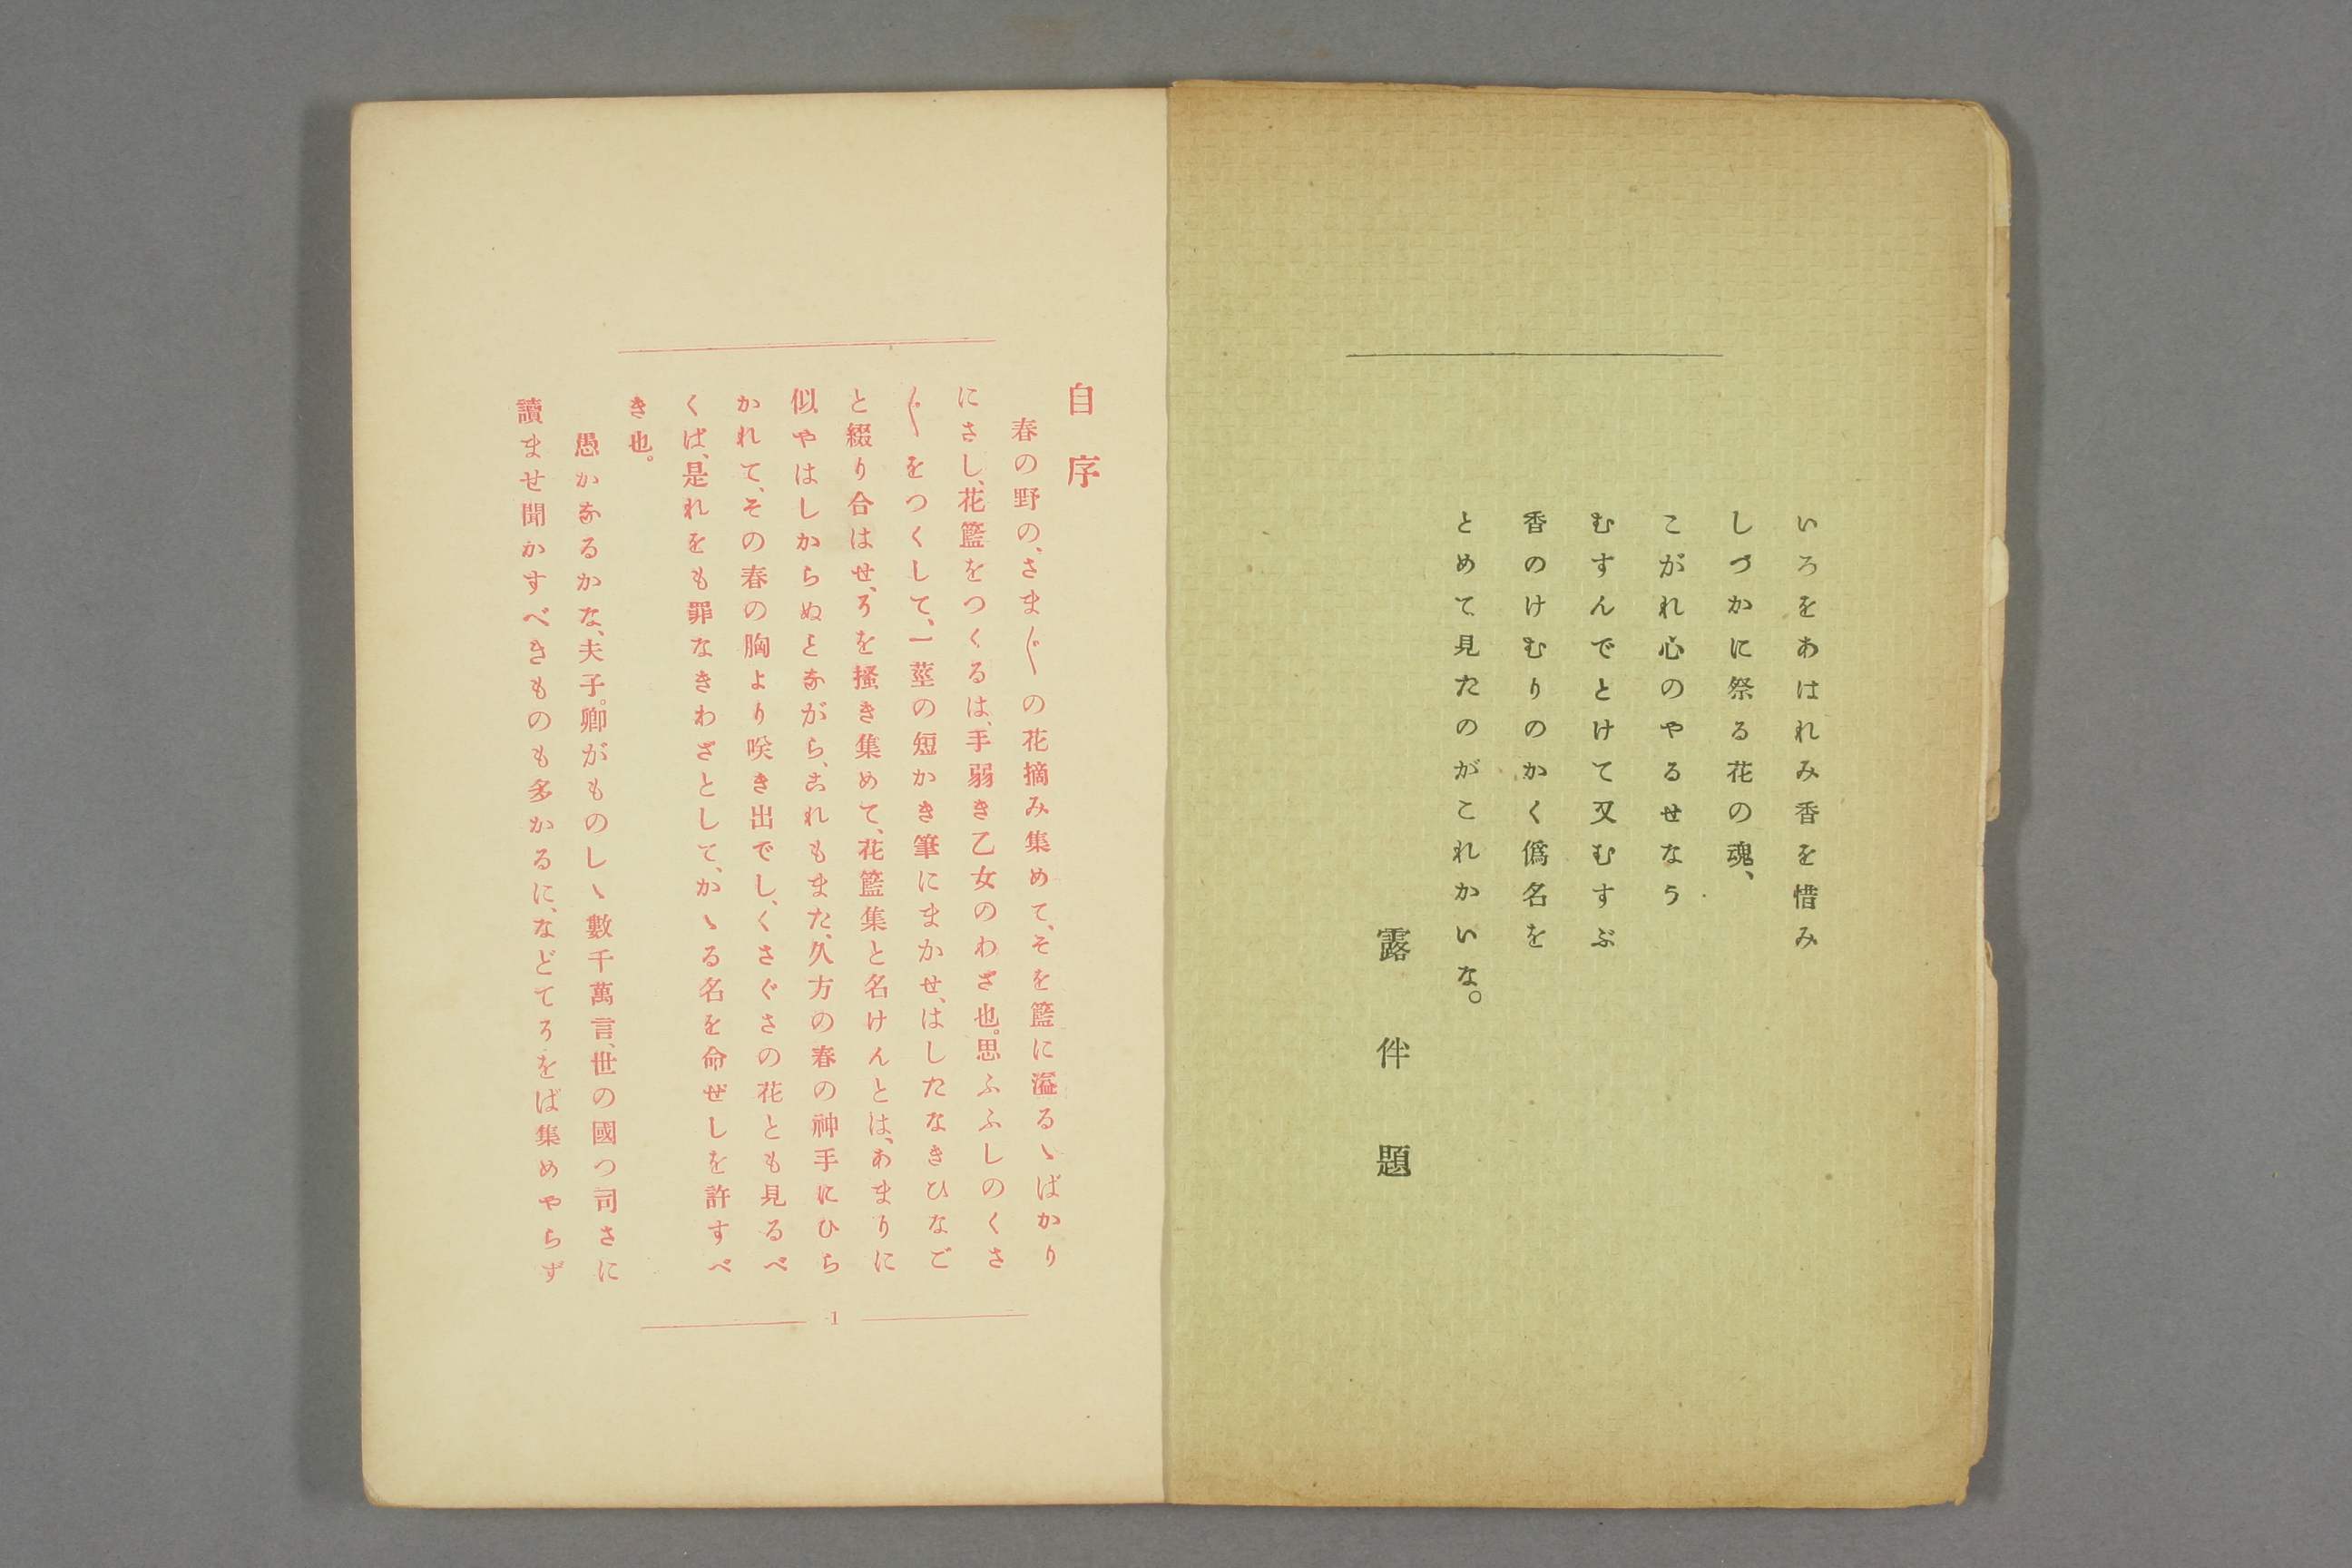 いろをあはれみ香を惜み
しづかに祭る花の魂、
こがれ心のやるせなう
むすんでとけて又むすぶ
香のけむりのかく僞名を
とめて見たのがこれかいな。
露伴題
自序
春の野の、さま〴〵の花摘み集めて、そを籃に溢るゝばかり
にさし、花籃をつくるは、手弱き乙女のわざ也。思ふふしのくさ
〴〵をつくして、一莖の短かき筆にまかせ、はしたなきひなご
と綴り合はせ、そを搔き集めて、花籃集と名けんとは、あまりに
似やはしからぬとながら、これもまた、久方の春の神手にひら
かれて、その春の胸より咲き出でし、くさぐさの花とも見るべ
くば、是れをも罪なきわざとして、かゝる名を命ぜしを許すべ
き也。
愚かなるかな、夫子。卿がものしゝ數千萬言、世の國つ司さに
讀ませ聞かすべきものも多かるに、などてそをば集めやらず
1